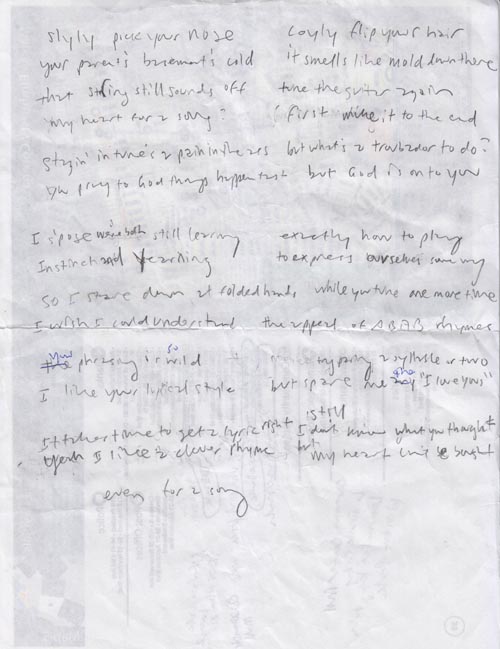 slyly pick your nose coyly flip your hair
your parent's basement's cold it smells like mold down there
that string still sounds off tune the guitar again
"my heart for a song? first make it to the end
stayin' in tune's a pain in the ass but what's a troubador to do?
you pray to God things happen fast but God is onto you
I s'pose we're both still learning exactly how to play
Instinct and yearning to express ourselves some way
So I stare down at folded hands while you tune one more time
I wish I could understand the appeal of ABAB rhymes
your phrasing is so wild a syllable or two
I like your lyrical style but spare me the "I love yous"
It takes time to get a lyric right I still don't know what you thought
Yeah I like a clever rhyme but my heart can't be bought
even for a song